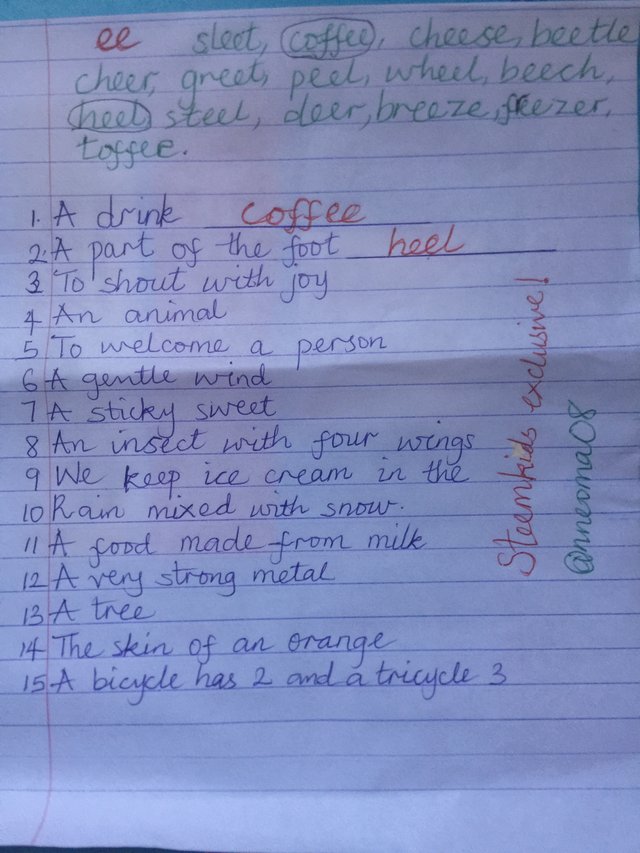 ee sleet, coffee, cheese, beetle
cheer, greet, peel, wheel, beech,
heel, steel, deer, breeze, freezer,
toffee.
1. A drink coffee
2. A part of the foot heel
3 To shout with joy
4 An animal
5 To welcome a person
6 A gentle wind
7 A sticky sweet
8 An insect with four wings
9 We keep ice cream in the
10 Rain mixed with snow.
11 A food made from milk
12 A very strong metal
13 A tree
14 The skin of an orange
15 A bicycle has 2 and a tricycle 3
Steemkids exclusive!
@nneoma08